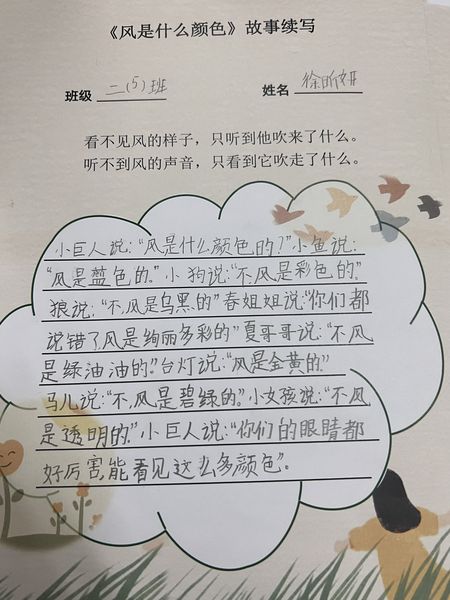 《风是什么颜色》故事续写
班级 二(5)班 姓名 徐昕妍
看不见风的样子，只听到他吹来了什么。
听不到风的声音，只看到它吹走了什么。
小巨人说：“风是什么颜色的？”小鱼说：
“风是蓝色的。”小狗说：“不，风是彩色的”。
狼说：“不，风是乌黑的”春姐姐说“你们都
说错了风是绚丽多彩的”夏哥哥说：“不，风
是绿油油的。”台灯说：“风是金黄的”
马儿说：“不，风是碧绿的。”小女孩说：“不，风
是透明的。”小巨人说：“你们的眼睛都
好厉害，能看见这么多颜色”。